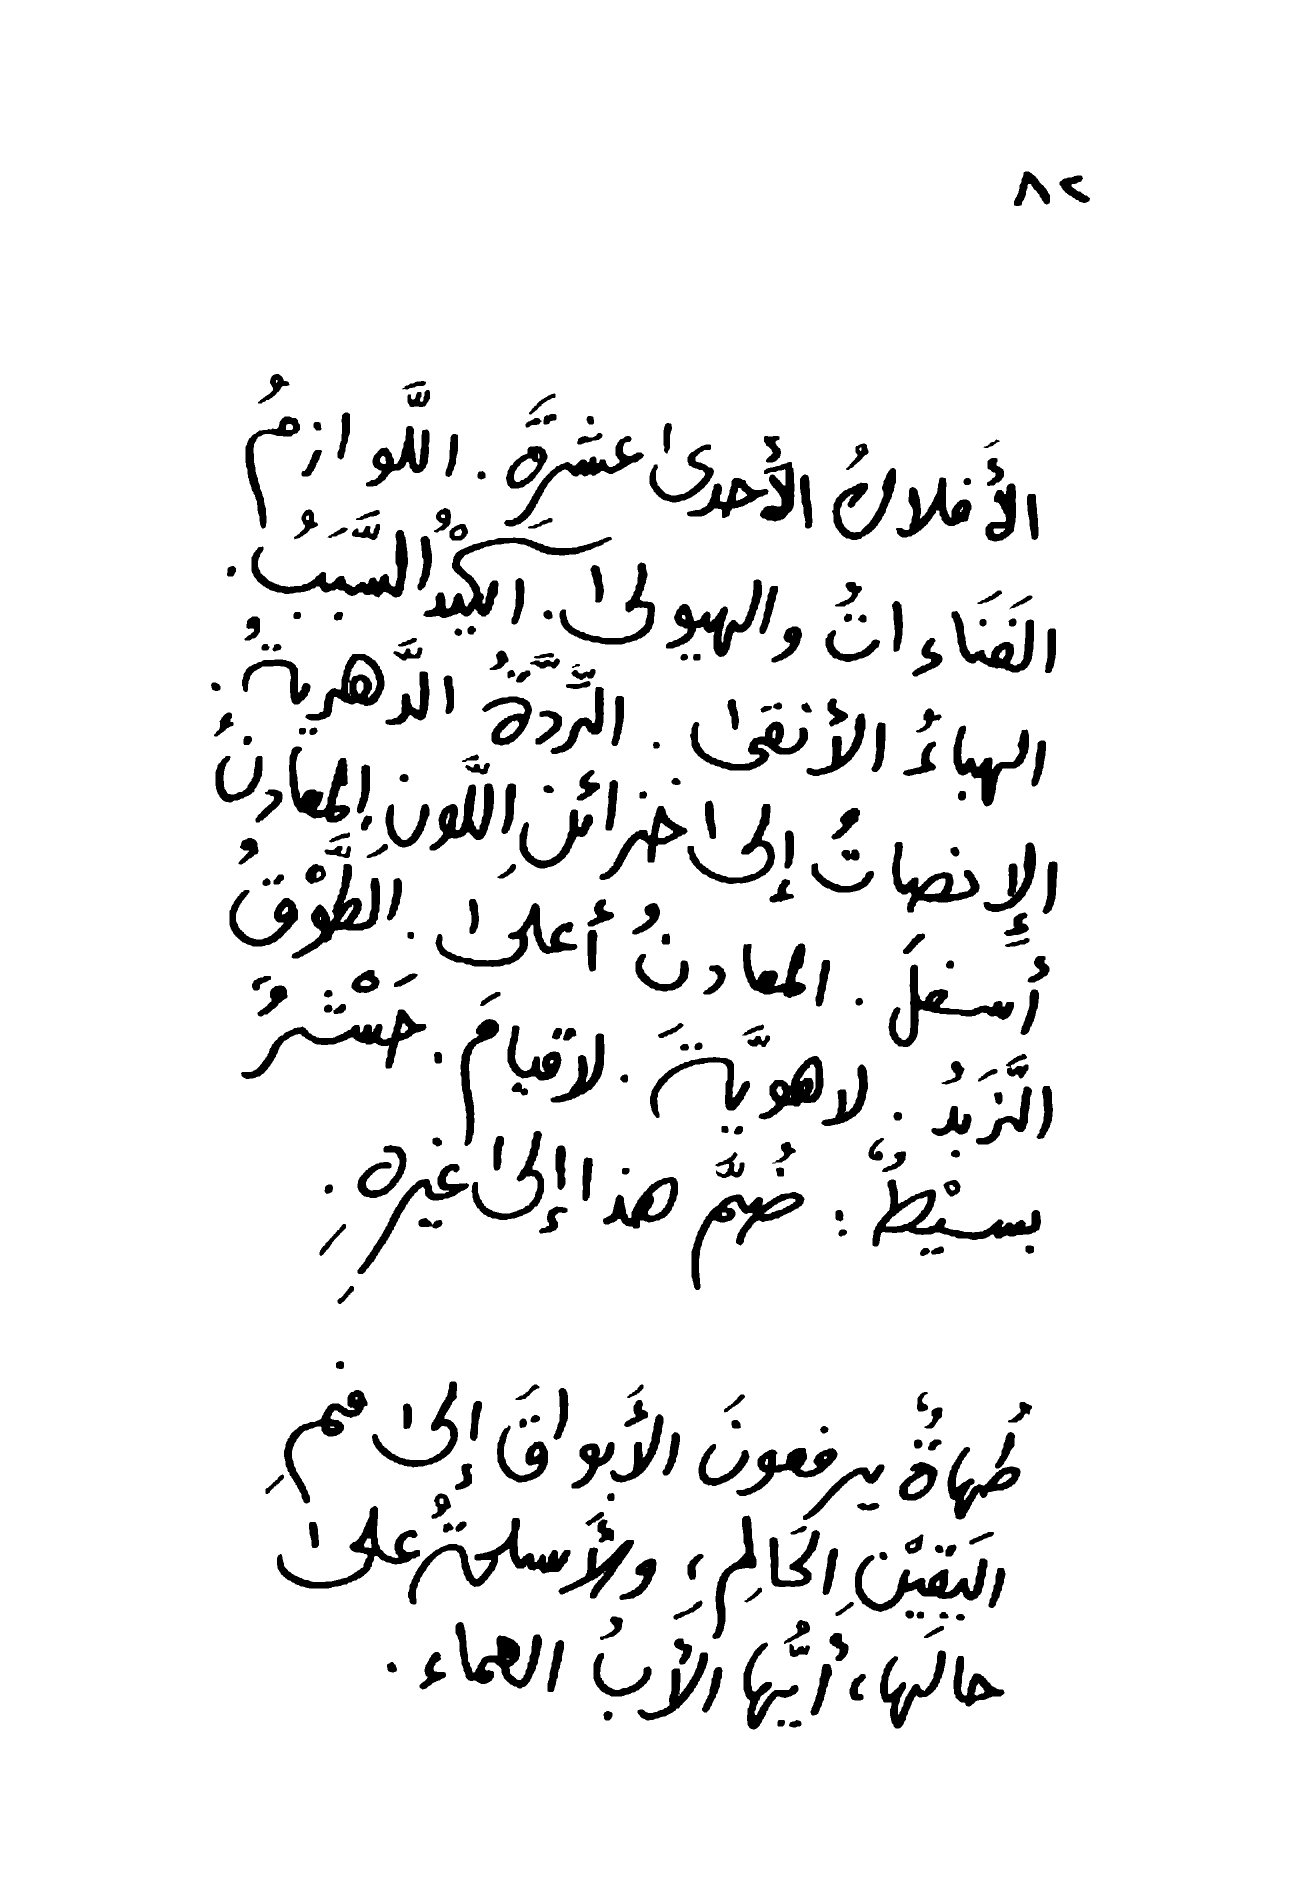 ٨٢
الأَفلاكُ الأَحدىٰ عشَرَةَ. اللَّوازمُ
الفَنَاءاتُ والهيولىٰ. الكَيْدُ السَّبَبُ.
الهباءُ الأنقَىٰ. التَّردَّةُ الدَّهريةُ.
الإِنصاتُ إلىٰ خزائنِ اللَّونِ. المعادنُ
أسفلَ. المعادنُ أعلىٰ. الطَّوْقُ
الزَّبَدُ. لاهويَّةَ. لاقيامَ. حَسْتَرٌ
بسيْطٌ: ضُمَّ هذا إلىٰ غيرِهِ.
طُهاةٌ يرفعونَ الأَبواقَ إلىٰ فمِ
اليَقيْنِ الحَالِمِ، والأَسلحةُ علىٰ
حالَها، أيُّها الأبُ العماء.